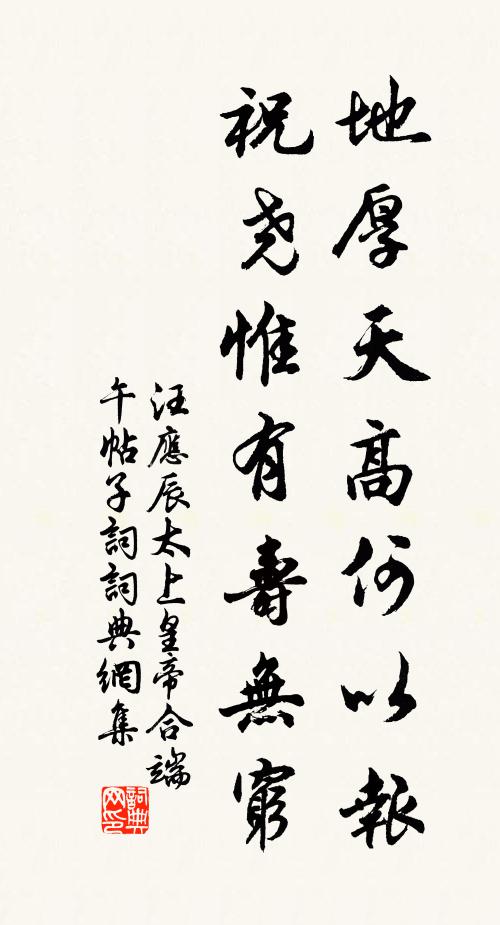 地厚天高何以報
祝尧惟有壽無窮
汪應辰太上皇帝合端
午帖子詞詞典網集
詞典
网印